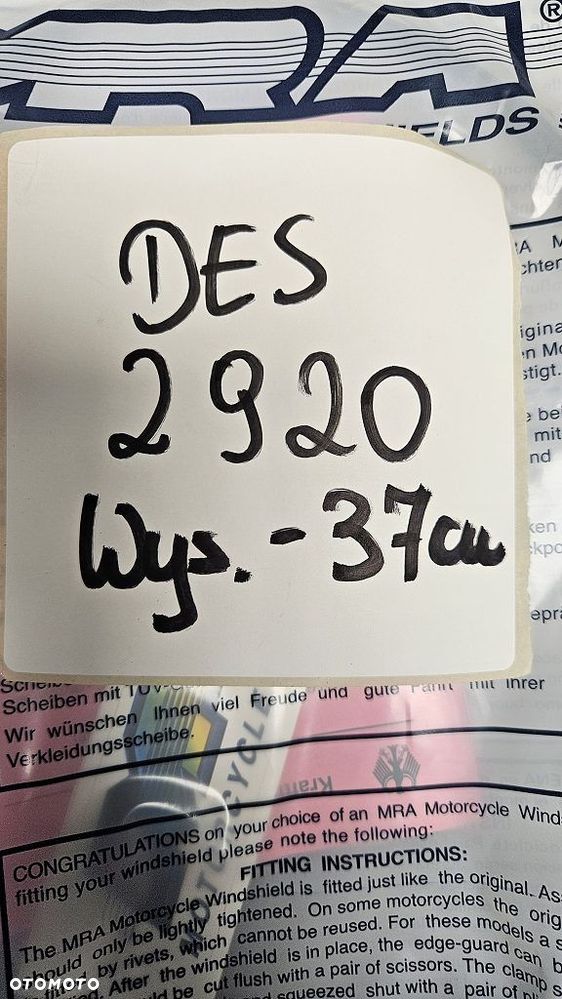 MRA
®
DES
2920
Wys. - 37cm
Scheiben mit TÜV-
Wir wünschen Ihnen viel Freude und gute Fahrt mit Ihrer
Verkleidungsscheibe.
MOTORCYCLE
Kram
CONGRATULATIONS on your choice of an MRA Motorcycle
fitting your windshield please note the following:
FITTING INSTRUCTIONS:
The MRA Motorcycle Windshield is fitted just like the original.
should only be lightly tightened. On some motorcycles the
by rivets, which cannot be reused. For these models a
After the windshield is in place, the edge-guard can
be cut flush with a pair of scissors. The clamp
squeezed shut with a pair of
OTOMOTO